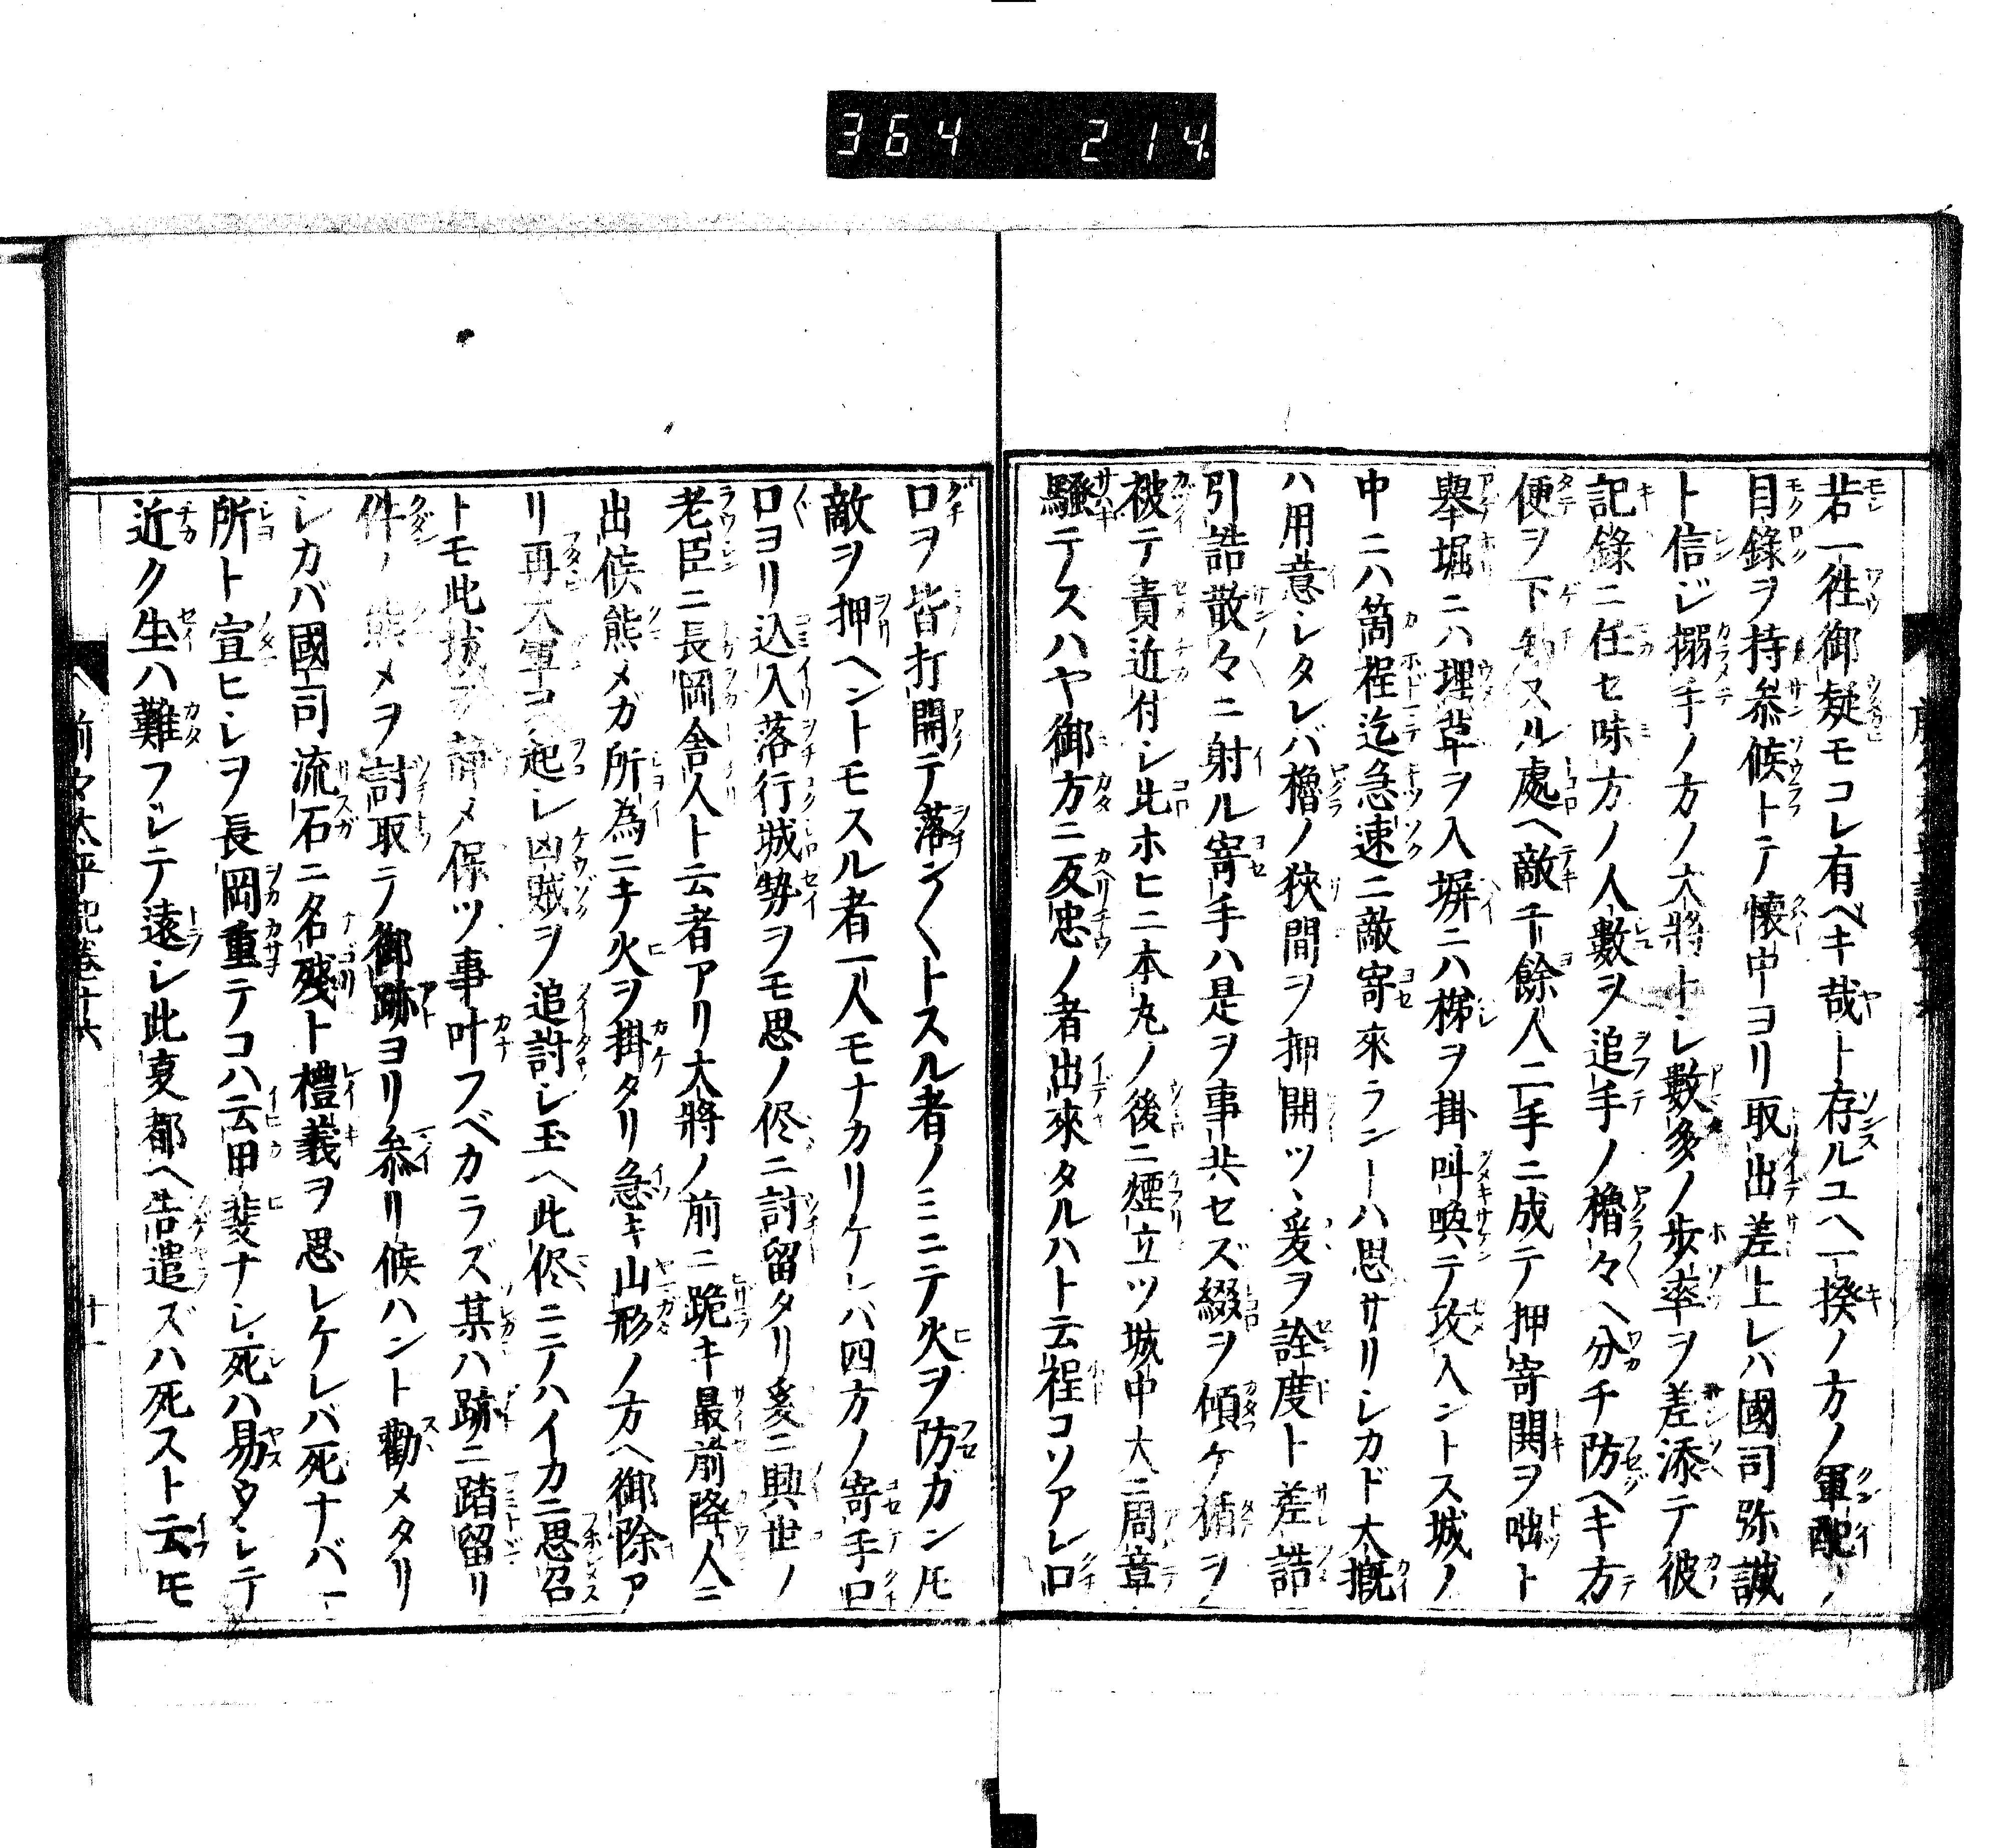 364 214
若一徃御疑モコレ有ベキ哉ト存ルユヘ一揆ノ方ノ軍配ノ
目錄ヲ持參候トテ懷中ヨリ取出差上レハ國司弥誠
ト信ジ搦手ノ方ノ大將トシ數多ノ歩卒ヲ差添テ彼
記錄ニ任セ味方ノ人數ヲ追手ノ櫓々ヘ分チ防ヘキ方
便ヲ下知スル處ヘ敵千餘人二手ニ成テ押寄鬨ヲ咄ト
擧堀ニハ埋草ヲ入塀ニハ梯ヲ掛叫喚テ攻入ントス城ノ
中ニハ箇程迄急速ニ敵寄來ランーハ思サリシカド大摡
ハ用意シタレバ櫓ノ狹間ヲ押開ツヽ爰ヲ詮度ト差詰
引詰散々ニ射ル寄手ハ是ヲ事共セズ綴ヲ傾ケ楯ヲ
被テ責近付シ比ホヒニ本丸ノ後ニ煙立ツ城中大ニ周章
騷テスハヤ御方ニ反忠ノ者出來タルハト云程コソアレ口
口ヲ皆打開テ落ン〱トスル者ノミニテ火ヲ防ガン𪜈
敵ヲ押ヘントモスル者一人モナカリケレバ四方ノ寄手口
口ヨリ込入落行城勢ヲモ思ノ侭ニ討留タリ爰ニ興世ノ
老臣ニ長岡舎人ト云者アリ大將ノ前ニ跪キ最前降人ニ
出候熊メガ所為ニキ火ヲ掛タリ急キ山形ノ方ヘ御除ア
リ再大軍ヲ起シ凶賊ヲ追討シ玉ヘ此侭ニテハイカニ思召
トモ此城ヲ静メ保ツ事叶フベカラズ某ハ跡ニ踏留リ
件ノ熊メヲ討取テ御跡ヨリ參リ候ハント勸メタリ
シカバ國司流石ニ名殘ト禮義ヲ思レケレバ死ナバ一
所ト宣ヒシヲ長岡重テコハ云甲斐ナシ死ハ易クシテ
近ク生ハ難フシテ遠シ此叓都ヘ告遣ズハ死ストモ云𪜈
前々太平記卷十六 十一